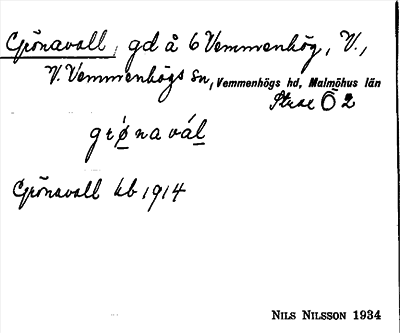 Grönavall, gd å 6 Vemmenhög, V.,
V. Vemmenhögs sn, Vemmenhögs hd, Malmöhus län
Ö 2
grø̱naváḻ
Grönavall kb 1914
NILS NILSSON 1934